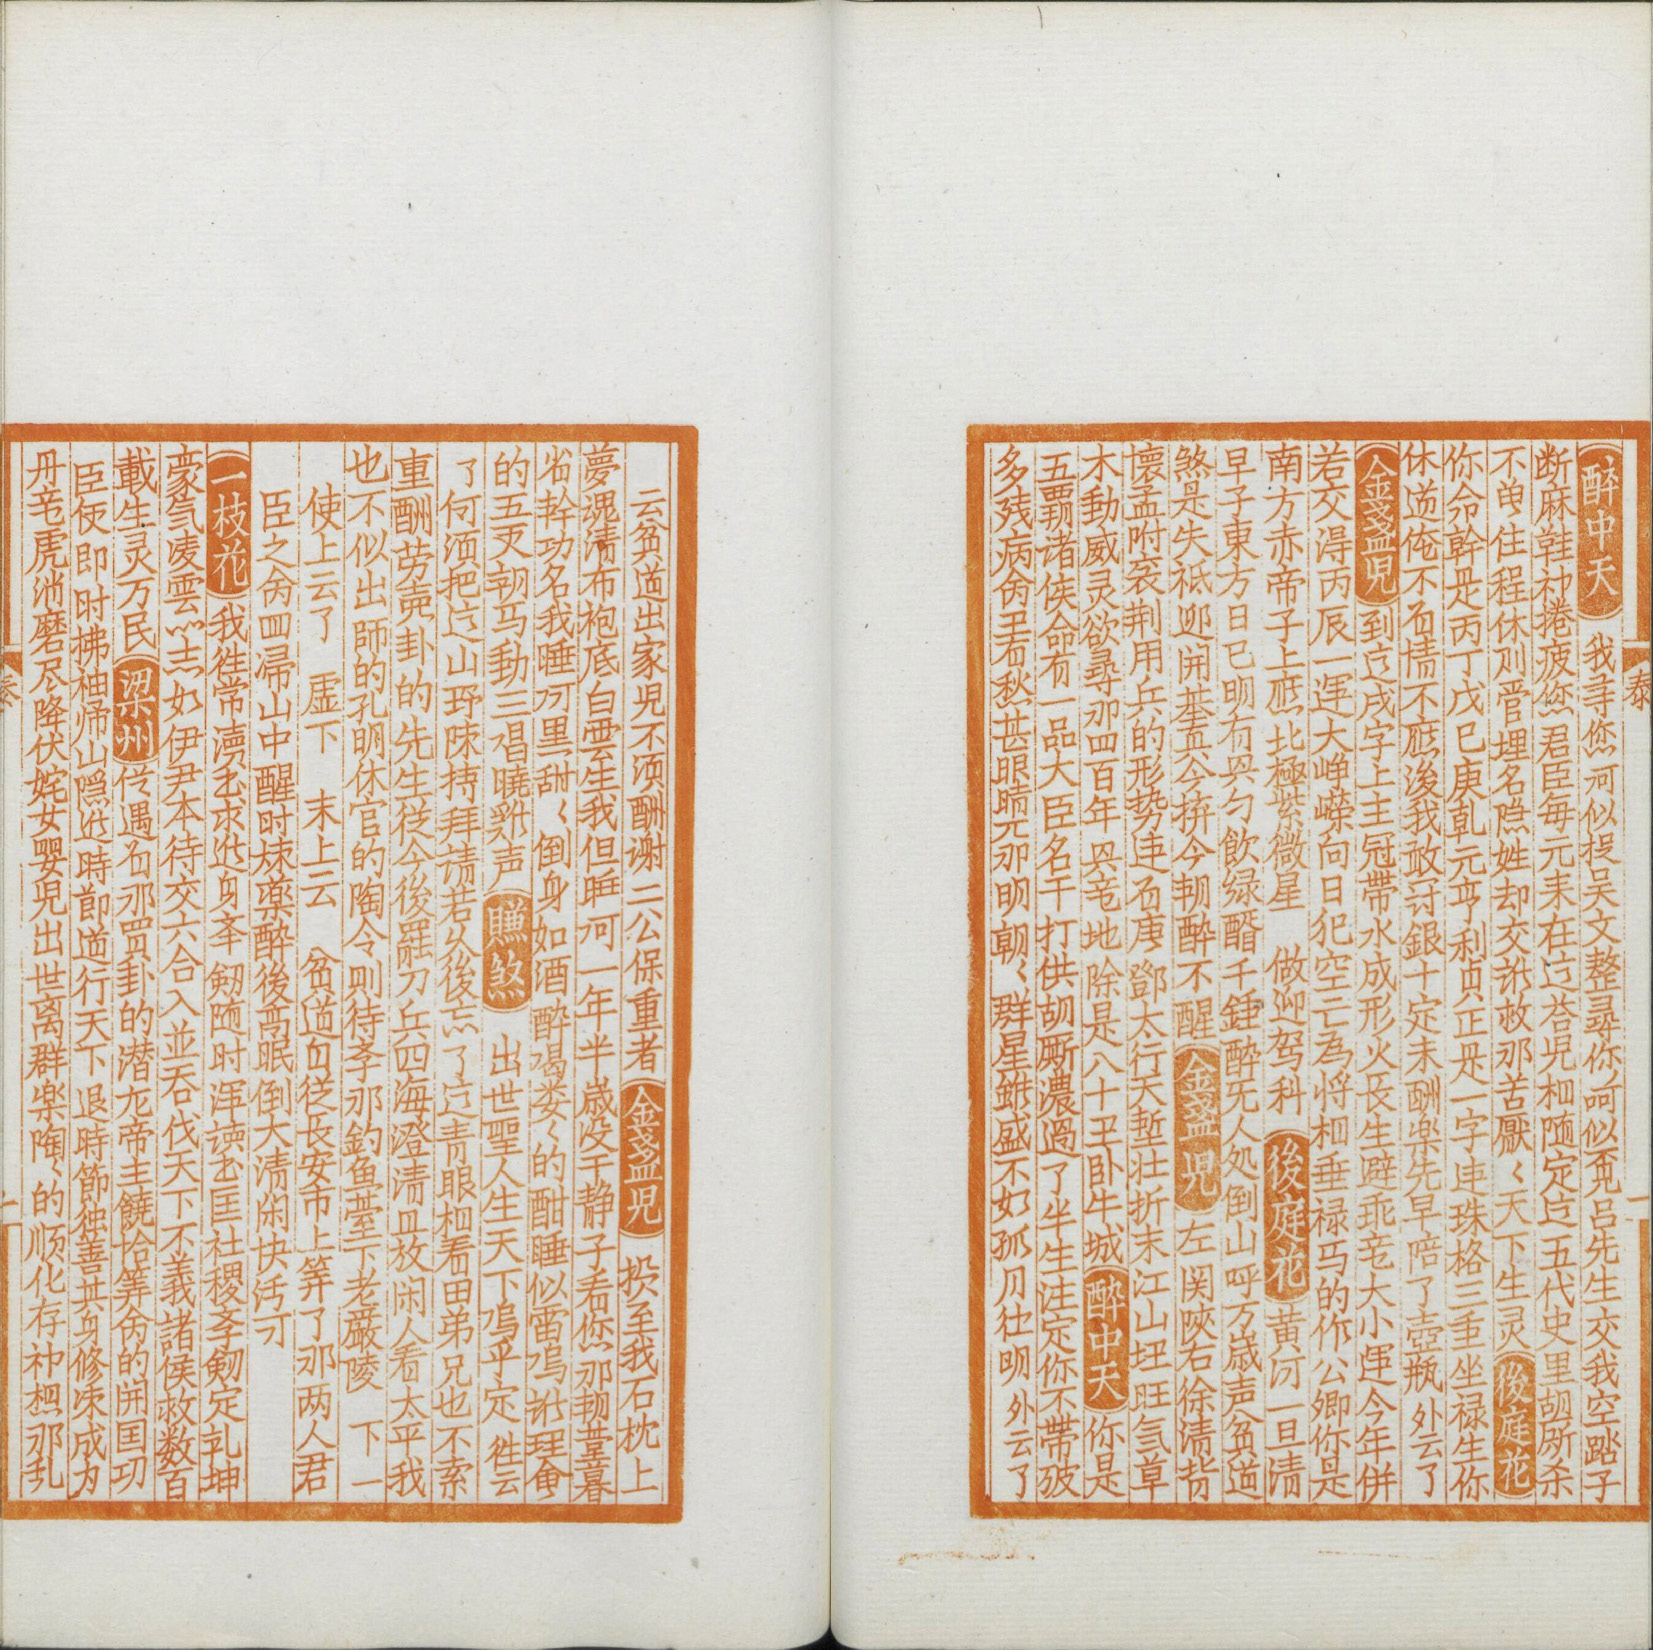 醉中天 我寻您河似提吴文整尋你呵似覓呂先生交我空踏子
断麻鞋神捲疲您君臣每元来在这荅児相随定这五代史里胡厮杀
不曽住程休则管埋名隐姓却交谁救那苦厭〻天下生灵 後庭花
你命幹是丙丁戊己庚乹元亨利贞正是一字连珠格三重坐禄生你
休道俺不着情不應後我敢罸銀十定未酬楽先早陪了壺瓶 外云了
金盞児 到这戌字上主冠帶水成形火长生避乖竜大小運今年併
若交得丙辰一運大峥嵘向日犯空亡為将相垂禄马的作公卿你是
南方赤帝子上應北極紫微星 做迎驾科 後庭花 黄河一旦清
早子東方日已明有與勺飲绿醑千鍾醉无人処倒山呼万歳声贫道
煞是失祗迎開基真今拚今朝醉不醒 金盞児 左関陝右徐清背
懷孟附衮荆用兵的形势连石庚 鄧太行天堑壮折末江山旺气草
木動威灵欲尋那四百年興竜地除是八十里卧牛城 醉中天 你是
五覇诸侯命有一品大臣名干打供胡厮濃過了半生注定你不帶破
多残病舍王石秋甚眼睛元那明朝〻群星雖盛不如孤月社明 外云了
云贫道出家児不须酬谢二公保重者 金盞児 投至我石枕上
夢魂清布袍底白雲生我但睡呵一年半歳没干静子看您那朝臺暮
省幹功名我睡呵里甜〻倒身如酒醉喝娄〻的酣睡似雷鳴谁理會
的五更朝马動三唱曉鸡声 賺煞 出世聖人生天下嗚乎定 徃云
了何须把这山野陳持拜請若久後忘了这青眼相看田弟兄也不索
重酬劳卖卦的先生従今後罷刀兵四海澄清且放闲人看太平我
也不似出師的孔明休官的陶令则待孝那釣鱼䑓下老嚴陵 下 一
使上云了 虚下 末上云 贫道自従长安市上筭了那两人君
臣之命四帰山中醒时炼藥醉後高眠倒大清闲快活可
一枝花 我徃常讀书求进身孝剱随时浑读书匡社稷孝剱定乹坤
豪气凌雲心志如伊尹本待交六合入並吞伐天下不義諸侯救数百
載生灵万民 梁州 従遇着那買卦的潜龙帝主饒恰筭命的開囯功
臣便即时拂袖帰山隐迭時節道行天下退時節独善其身修凍成力
丹竜虎消磨尽降伏姹女嬰児出世离群楽陶〻的顺化存神想那乱